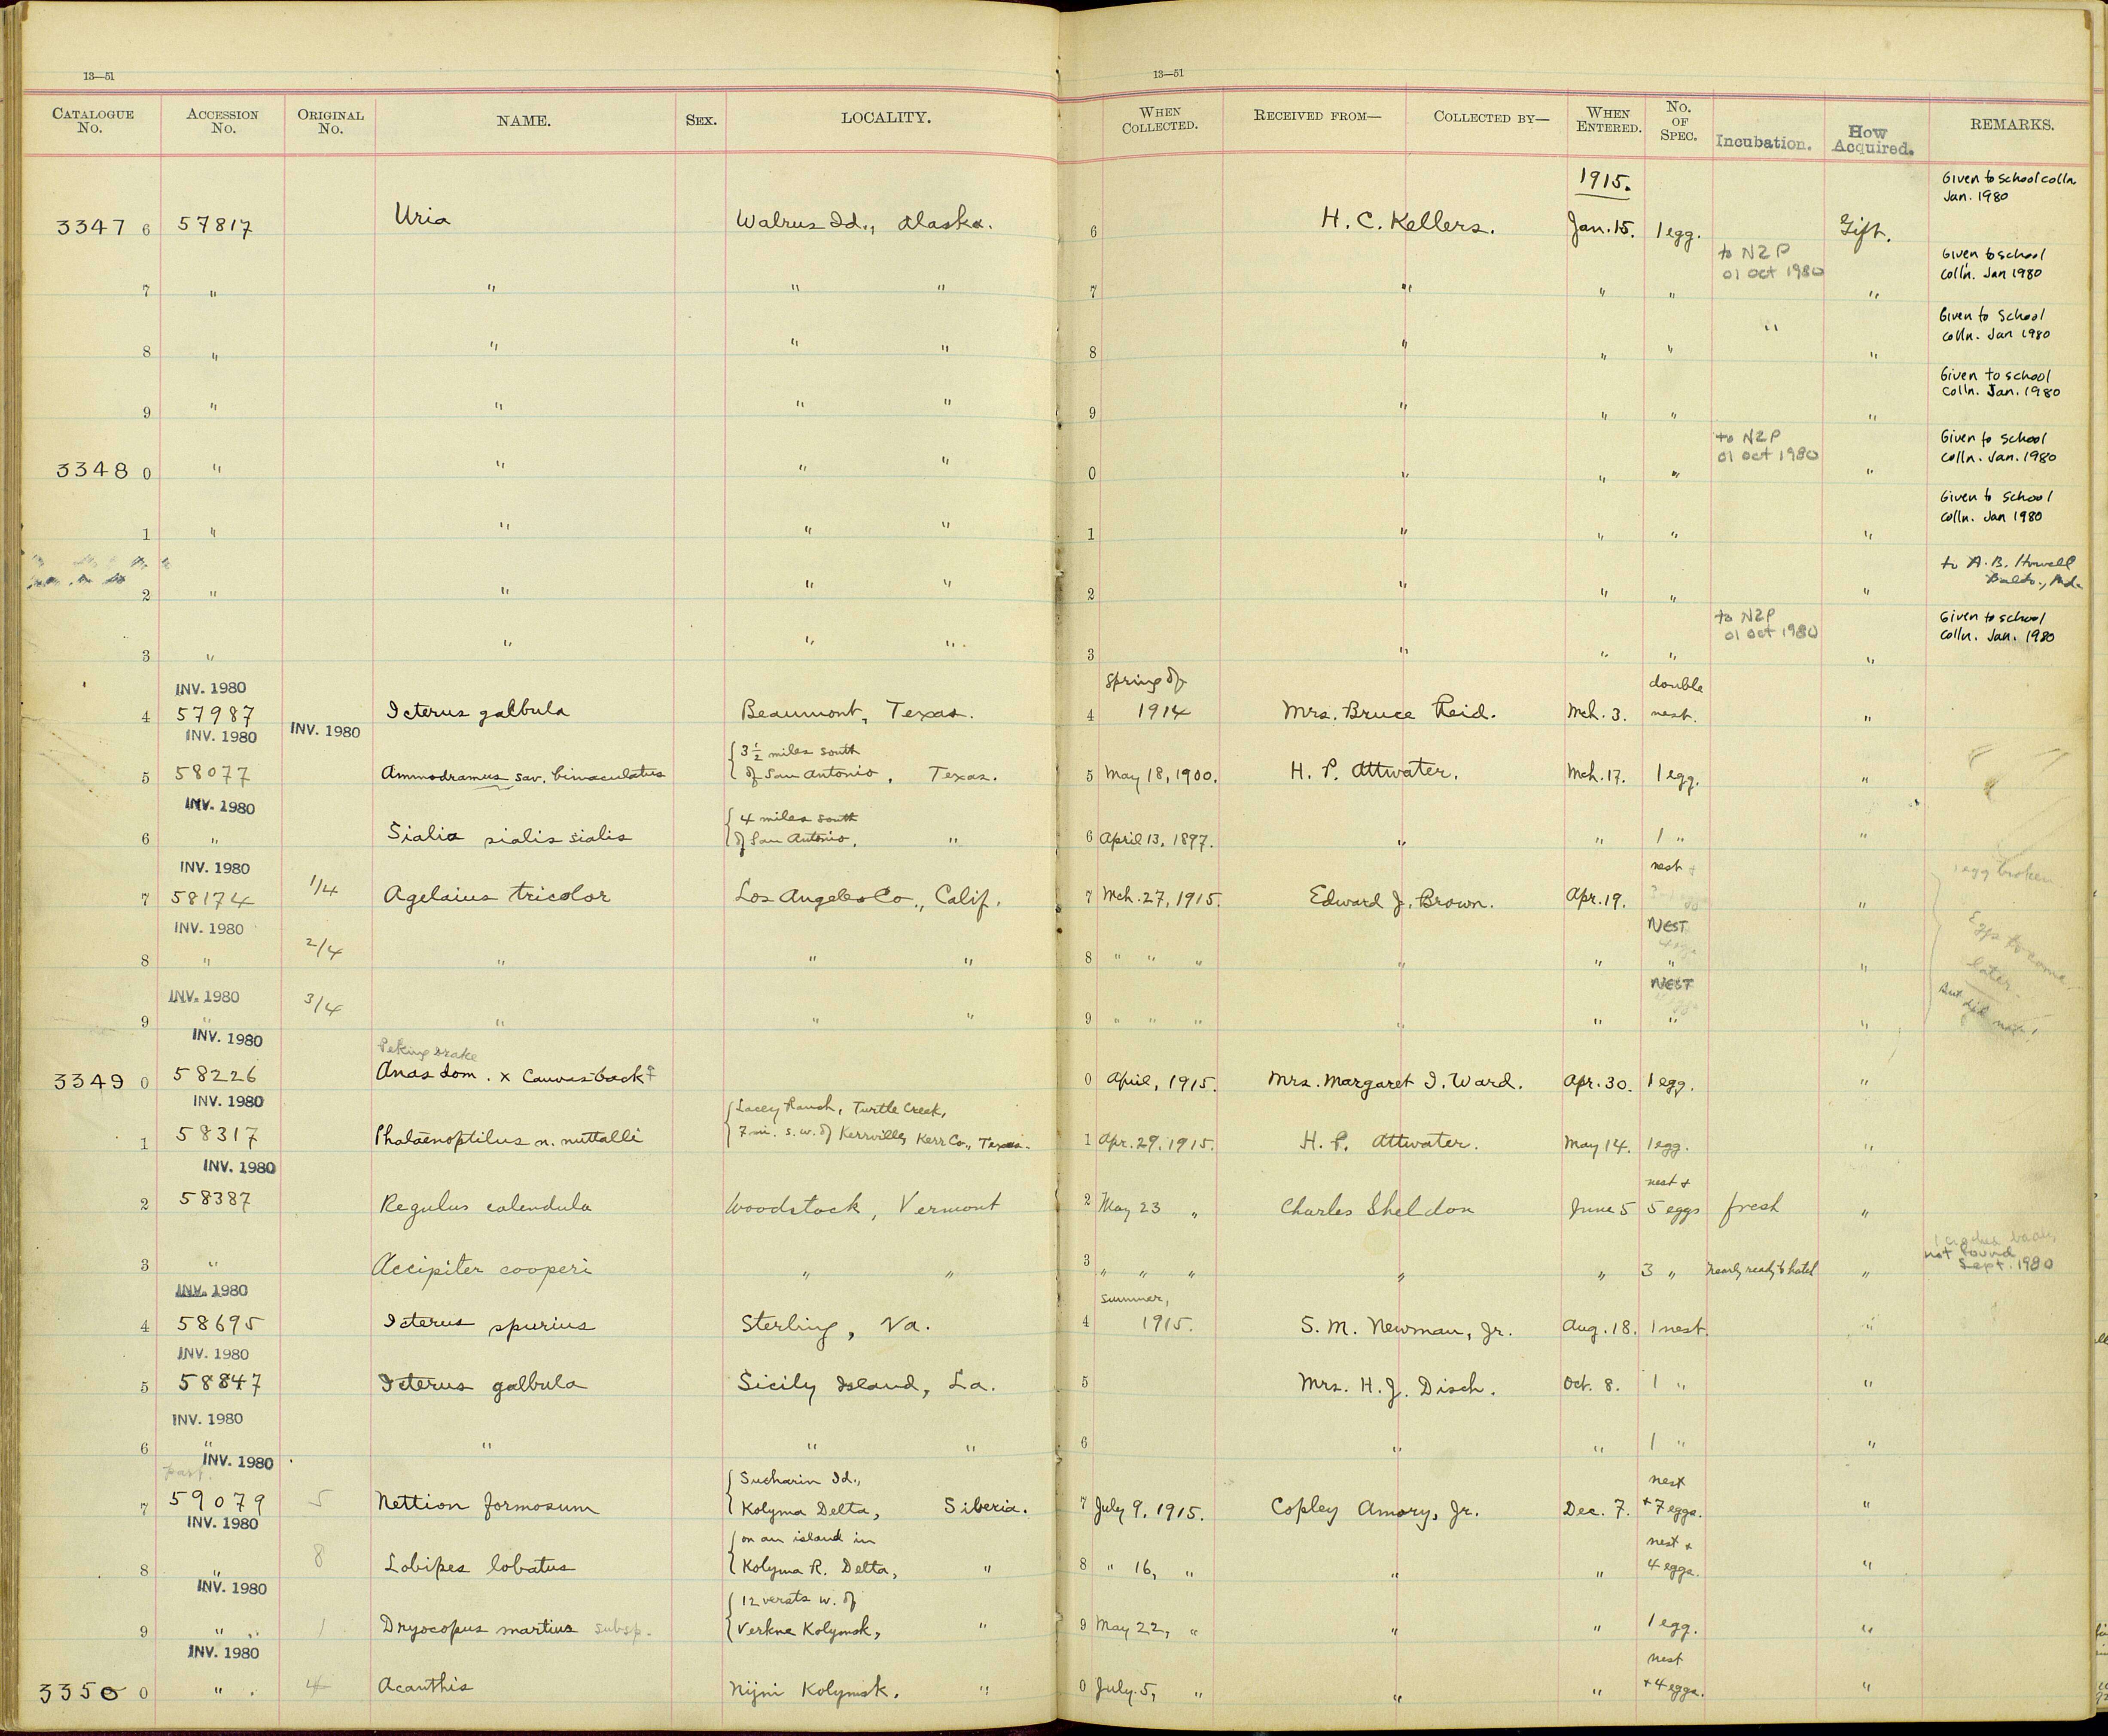 13—51
13—51
CATALOGUE No. ACCESSION No. ORIGINAL No. NAME. SEX. LOCALITY. WHEN COLLECTED. RECEIVED FROM— COLLECTED BY— WHEN ENTERED. No. OF SPEC. Incubation. How Acquired. REMARKS.
1915. Given to school colln. Jan. 1980
3347 6 57817 Uria Walrus Id., Alaska. 6 H. C. Kellers. Jan. 15. 1 egg. Gift.
to N2P 01 Oct 1980 Given to school colln. Jan 1980
7 " " " " 7 " " " "
" Given to school colln. Jan 1980
8 " " " " 8 " " " "
Given to school colln. Jan. 1980
9 " " " " 9 " " " "
to N2P 01 Oct 1980 Given to school colln. Jan. 1980
3348 0 " " " " 0 " " " "
Given to school colln. Jan 1980
1 " " " " 1 " " " "
to A. B. Howell Balto., Md.
2 " " " " 2 " " " "
to N2P 01 Oct 1980 Given to school colln. Jan. 1980
3 " " " " 3 " " " "
INV. 1980 Spring of double
4 57987 Icterus galbula Beaumont, Texas. 4 1914 Mrs. Bruce Reid. Mch. 3. nest. "
INV. 1980 INV. 1980 3 1/2 miles south
5 58077 Ammodramus sav. bimaculatus of San Antonio, Texas. 5 May 18, 1900. H. P. Attwater. Mch. 17. 1 egg. "
INV. 1980 4 miles south
6 " Sialia sialis sialis of San Antonio, " 6 April 13, 1897. " " 1 " "
INV. 1980 nest + 1 egg broken
7 58174 1/4 Agelaius tricolor Los Angeles Co., Calif. 7 Mch. 27, 1915. Edward J. Brown. Apr. 19. "
INV. 1980 NEST Eggs to come later.
8 " 2/4 " " " 8 " " " " " " "
INV. 1980 NEST But did not!
9 " 3/4 " " " 9 " " " " " " "
INV. 1980 Peking Drake
3349 0 58226 Anas dom. x Canvas-back ♀ 0 April, 1915. Mrs. Margaret I. Ward. Apr. 30. 1 egg. "
INV. 1980 Lacey Ranch, Turtle Creek,
1 58317 Phalaenoptilus n. nuttalli 7 mi. s.w. of Kerrville, Kerr Co., Texas. 1 Apr. 29, 1915. H. P. Attwater. May 14. 1 egg. "
INV. 1980 nest +
2 58387 Regulus calendula Woodstock, Vermont 2 May 23 " Charles Sheldon June 5 5 eggs fresh "
not found Sept. 1980
3 " Accipiter cooperi " " 3 " " " " " 3 " nearly ready to hatch "
INV. 1980 Summer,
4 58695 Icterus spurius Sterling, Va. 4 1915. S. M. Newman, Jr. Aug. 18. 1 nest. "
INV. 1980
5 58847 Icterus galbula Sicily Island, La. 5 Mrs. H. J. Disch. Oct. 8. 1 " "
INV. 1980
6 " " " " 6 " " 1 " "
part. INV. 1980 Sucharin Id., nest
7 59079 5 Nettion formosum Kolyma Delta, Siberia. 7 July 9, 1915. Copley Amory, Jr. Dec. 7. + 7 eggs. "
INV. 1980 on an island in nest +
8 " 8 Lobipes lobatus Kolyma R. Delta, " 8 " 16, " " " 4 eggs. "
INV. 1980 12 versts w. of
9 " 1 Dryocopus martius subsp. Verkne Kolymsk, " 9 May 22, " " " 1 egg. "
INV. 1980 nest
3350 0 " 4 Acanthis Nijni Kolymsk. " 0 July 5, " " " + 4 eggs. "